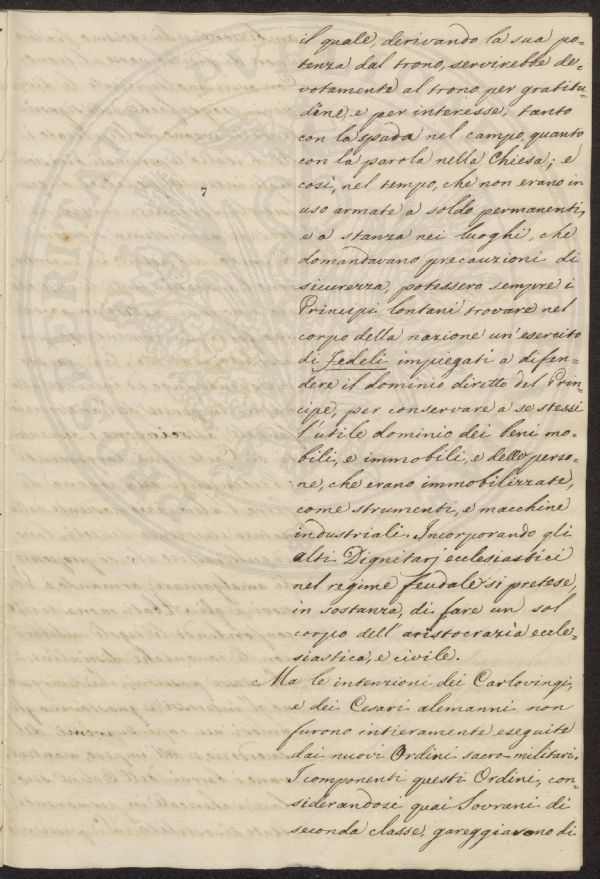 il quale, derivando la sua po-
tenza dal trono, servirebbe de-
votamente al trono per gratitu-
dine, e per interesse, tanto
con la spada nel campo, quanto
con la parola nella Chiesa; e
così, nel tempo, che non erano in
uso armate a soldo permanenti,
e a stanza nei luoghi, che
domandavano precauzioni di
sicurezza, potessero sempre i
Principi lontani trovare nel
corpo della nazione un'esercito
di fedeli impiegati a difen-
dere il dominio diretto del Prin-
cipe, per conservare a se stessi
l'utile dominio dei beni mo-
bili, e immobili, e delle perso-
ne, che erano immobilizzate,
come strumenti, e macchine
industriali. Incorporando gli
alti Dignitarj ecclesiastici
nel regime feudale si pretese,
in sostanza, di fare un sol
corpo dell'aristocrazia eccle-
siastica, e civile.
Ma le intenzioni dei Carlovingi,
e dei Cesari alemanni non
furono intieramente eseguite
dai nuovi Ordini sacro-militari.
I componenti questi Ordini, con-
siderandosi quai Sovrani di
seconda classe, gareggiavano di